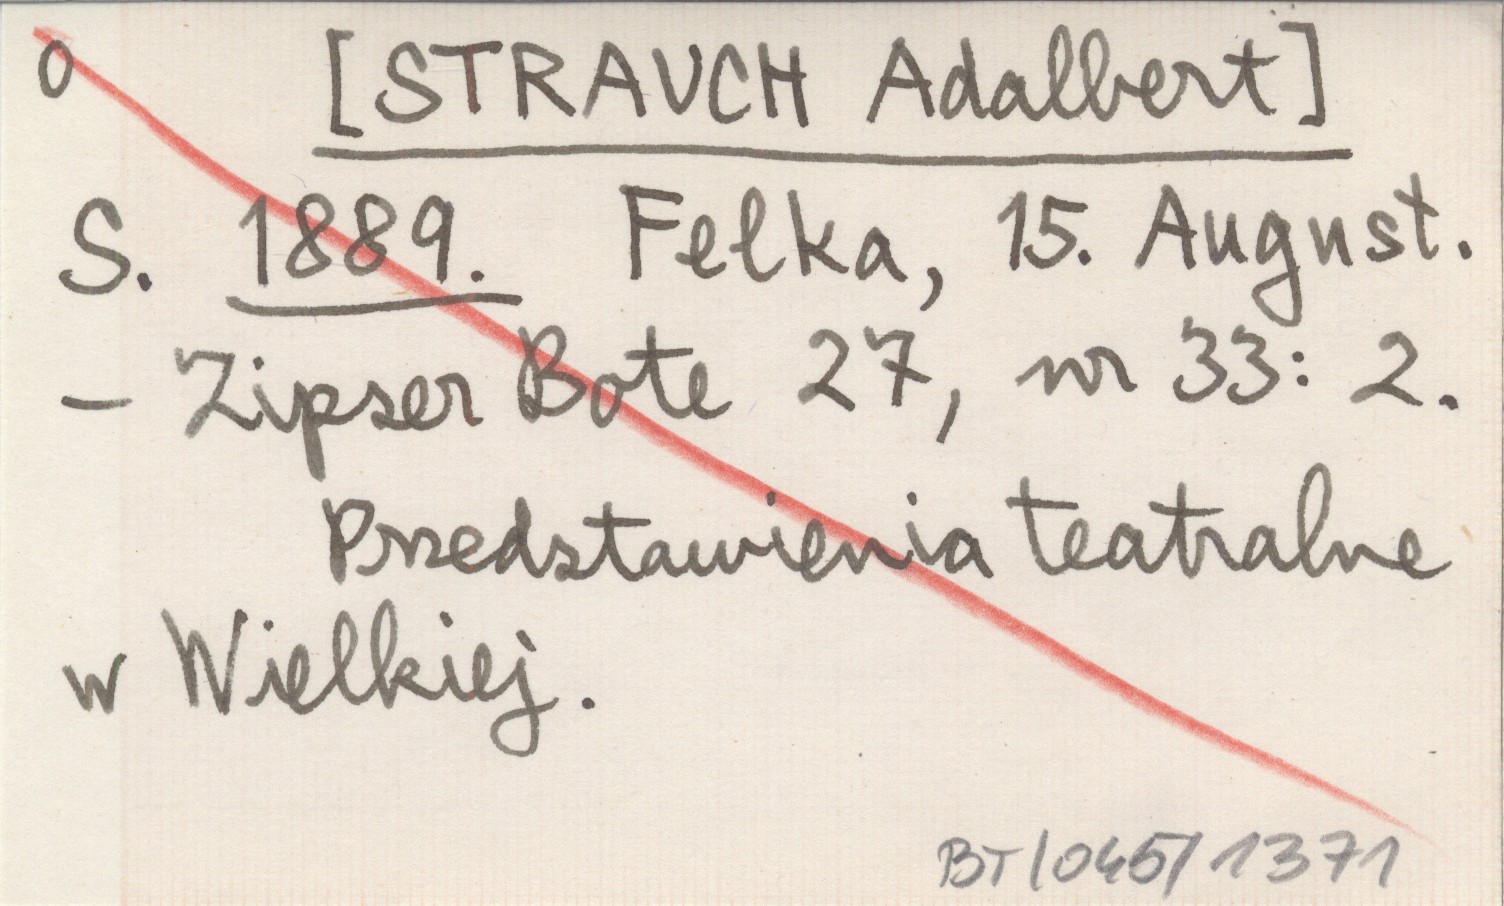 o [STRAUCH Adalbert]
S. 1889. Felka, 15. August.
– Zipser Bote 27, nr 33: 2.
Przedstawienia teatralne
w Wielkiej.
BT/045/1371